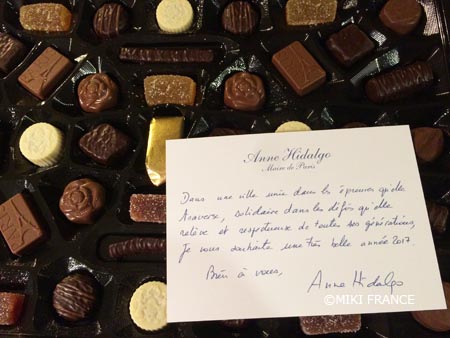 Anne Hidalgo
Maire de Paris
Dans une ville unie dans les épreuves qu'elle
traverse, solidaire dans les défis qu'elle
relève et respectueuse de toutes ses générations,
Je vous souhaite une très belle année 2017.
Bien à vous,
Anne Hidalgo
©MIKI FRANCE